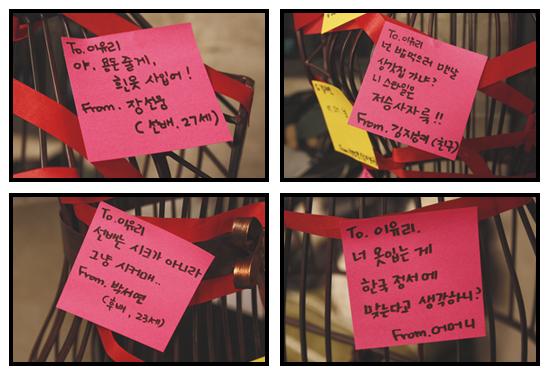 To. 이유리
야. 용돈 줄게,
흰옷 사입어!
From. 장선
(선배, 27세)
To. 이유리
넌 밥먹으러 맨날
상갓집 가냐?
니 스타일은
저승사자 룩!!
From. 김지
(친구)
To. 이유리
선배는 시크가 아니라
그냥 시커매..
From. 박서연
(후배, 23세)
To. 이유리.
너 옷입는 게
한국 정서에
맞는다고 생각하니?
From. 어머니